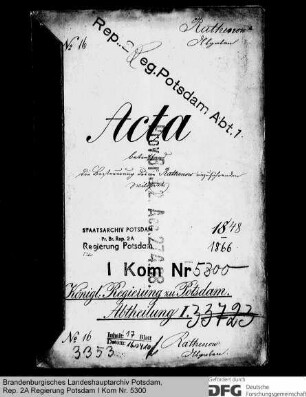 Rathenow
No 16
Abgaben
Rep. 2 Reg. Potsdam Abt. 1
Acta
betreffend
die Besteuerung des in Rathenow einzuführenden
Wildprets
STAATSARCHIV POTSDAM
Pr. Br. Rep. 2 A
Regierung Potsdam
1848
1866
I Kom Nr 5300
Königl. Regierung zu Potsdam.
Abtheilung I. 33723
No 16
3353
Inhalt: 17 Blatt
Rathenow
Abgaben
Brandenburgisches Landeshauptarchiv Potsdam,
Rep. 2A Regierung Potsdam I Kom Nr. 5300
Gefördert durch
DFG Deutsche
Forschungsgemeinschaft